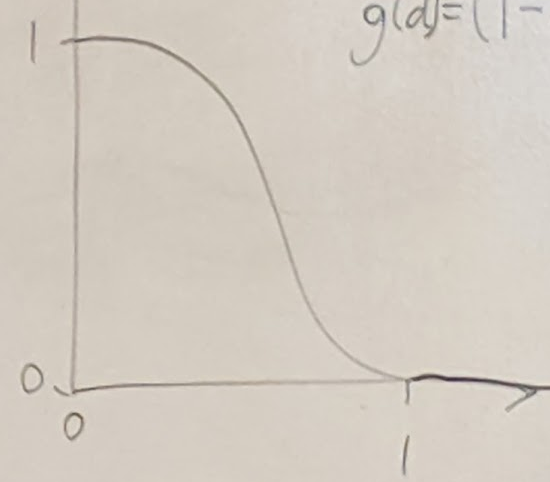 g(d)=(1-
1
0
0
1